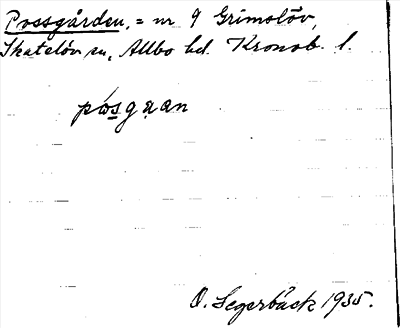 Possgården, = nr 9 Grimslöv,
Skatelöv sn, Allbo hd. Kronob. l.
pósgaan
O. Segerbäck 1935.